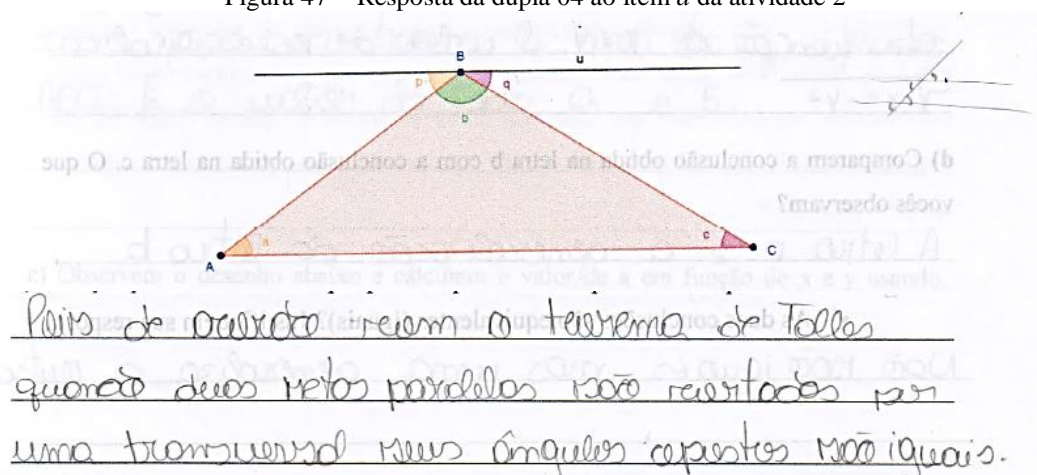 Figura 47 – Resposta da dupla 04 ao item a da atividade 2
B
u
p
q
b
a
c
A
C
Pois de acordo com o teorema de Talles
quando duas retas paralelas são cortadas por
uma transversal seus ângulos opostos são iguais.